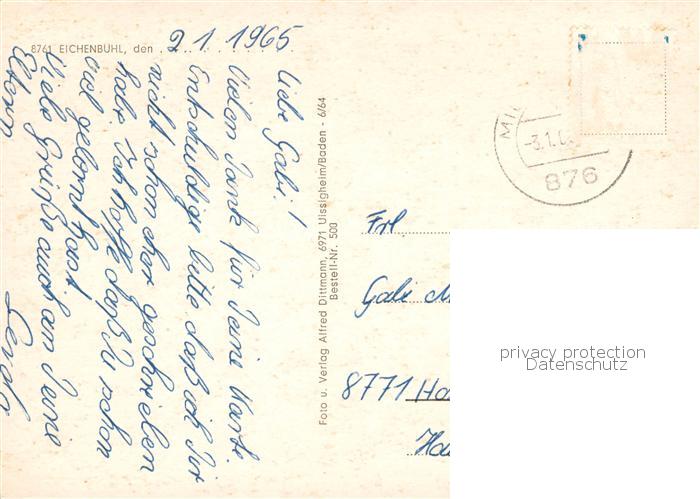 8761 EICHENBÜHL, den 2.1.1965
Liebe Gabi!
Vielen Dank für Deine Karte.
Entschuldige bitte daß ich Dir
nicht schon eher geschrieben
habe. Ich hoffe daß Du schon
viel gelernt hast.
Viele Grüße auch an Deine
Eltern
Foto u. Verlag Alfred Dittmann, 6971 Uissigheim/Baden - 6/64
Bestell-Nr. 500
MI
-3.1.6
876
Frl.
Gabi M
8771 Ha
Ha
privacy protection
Datenschutz